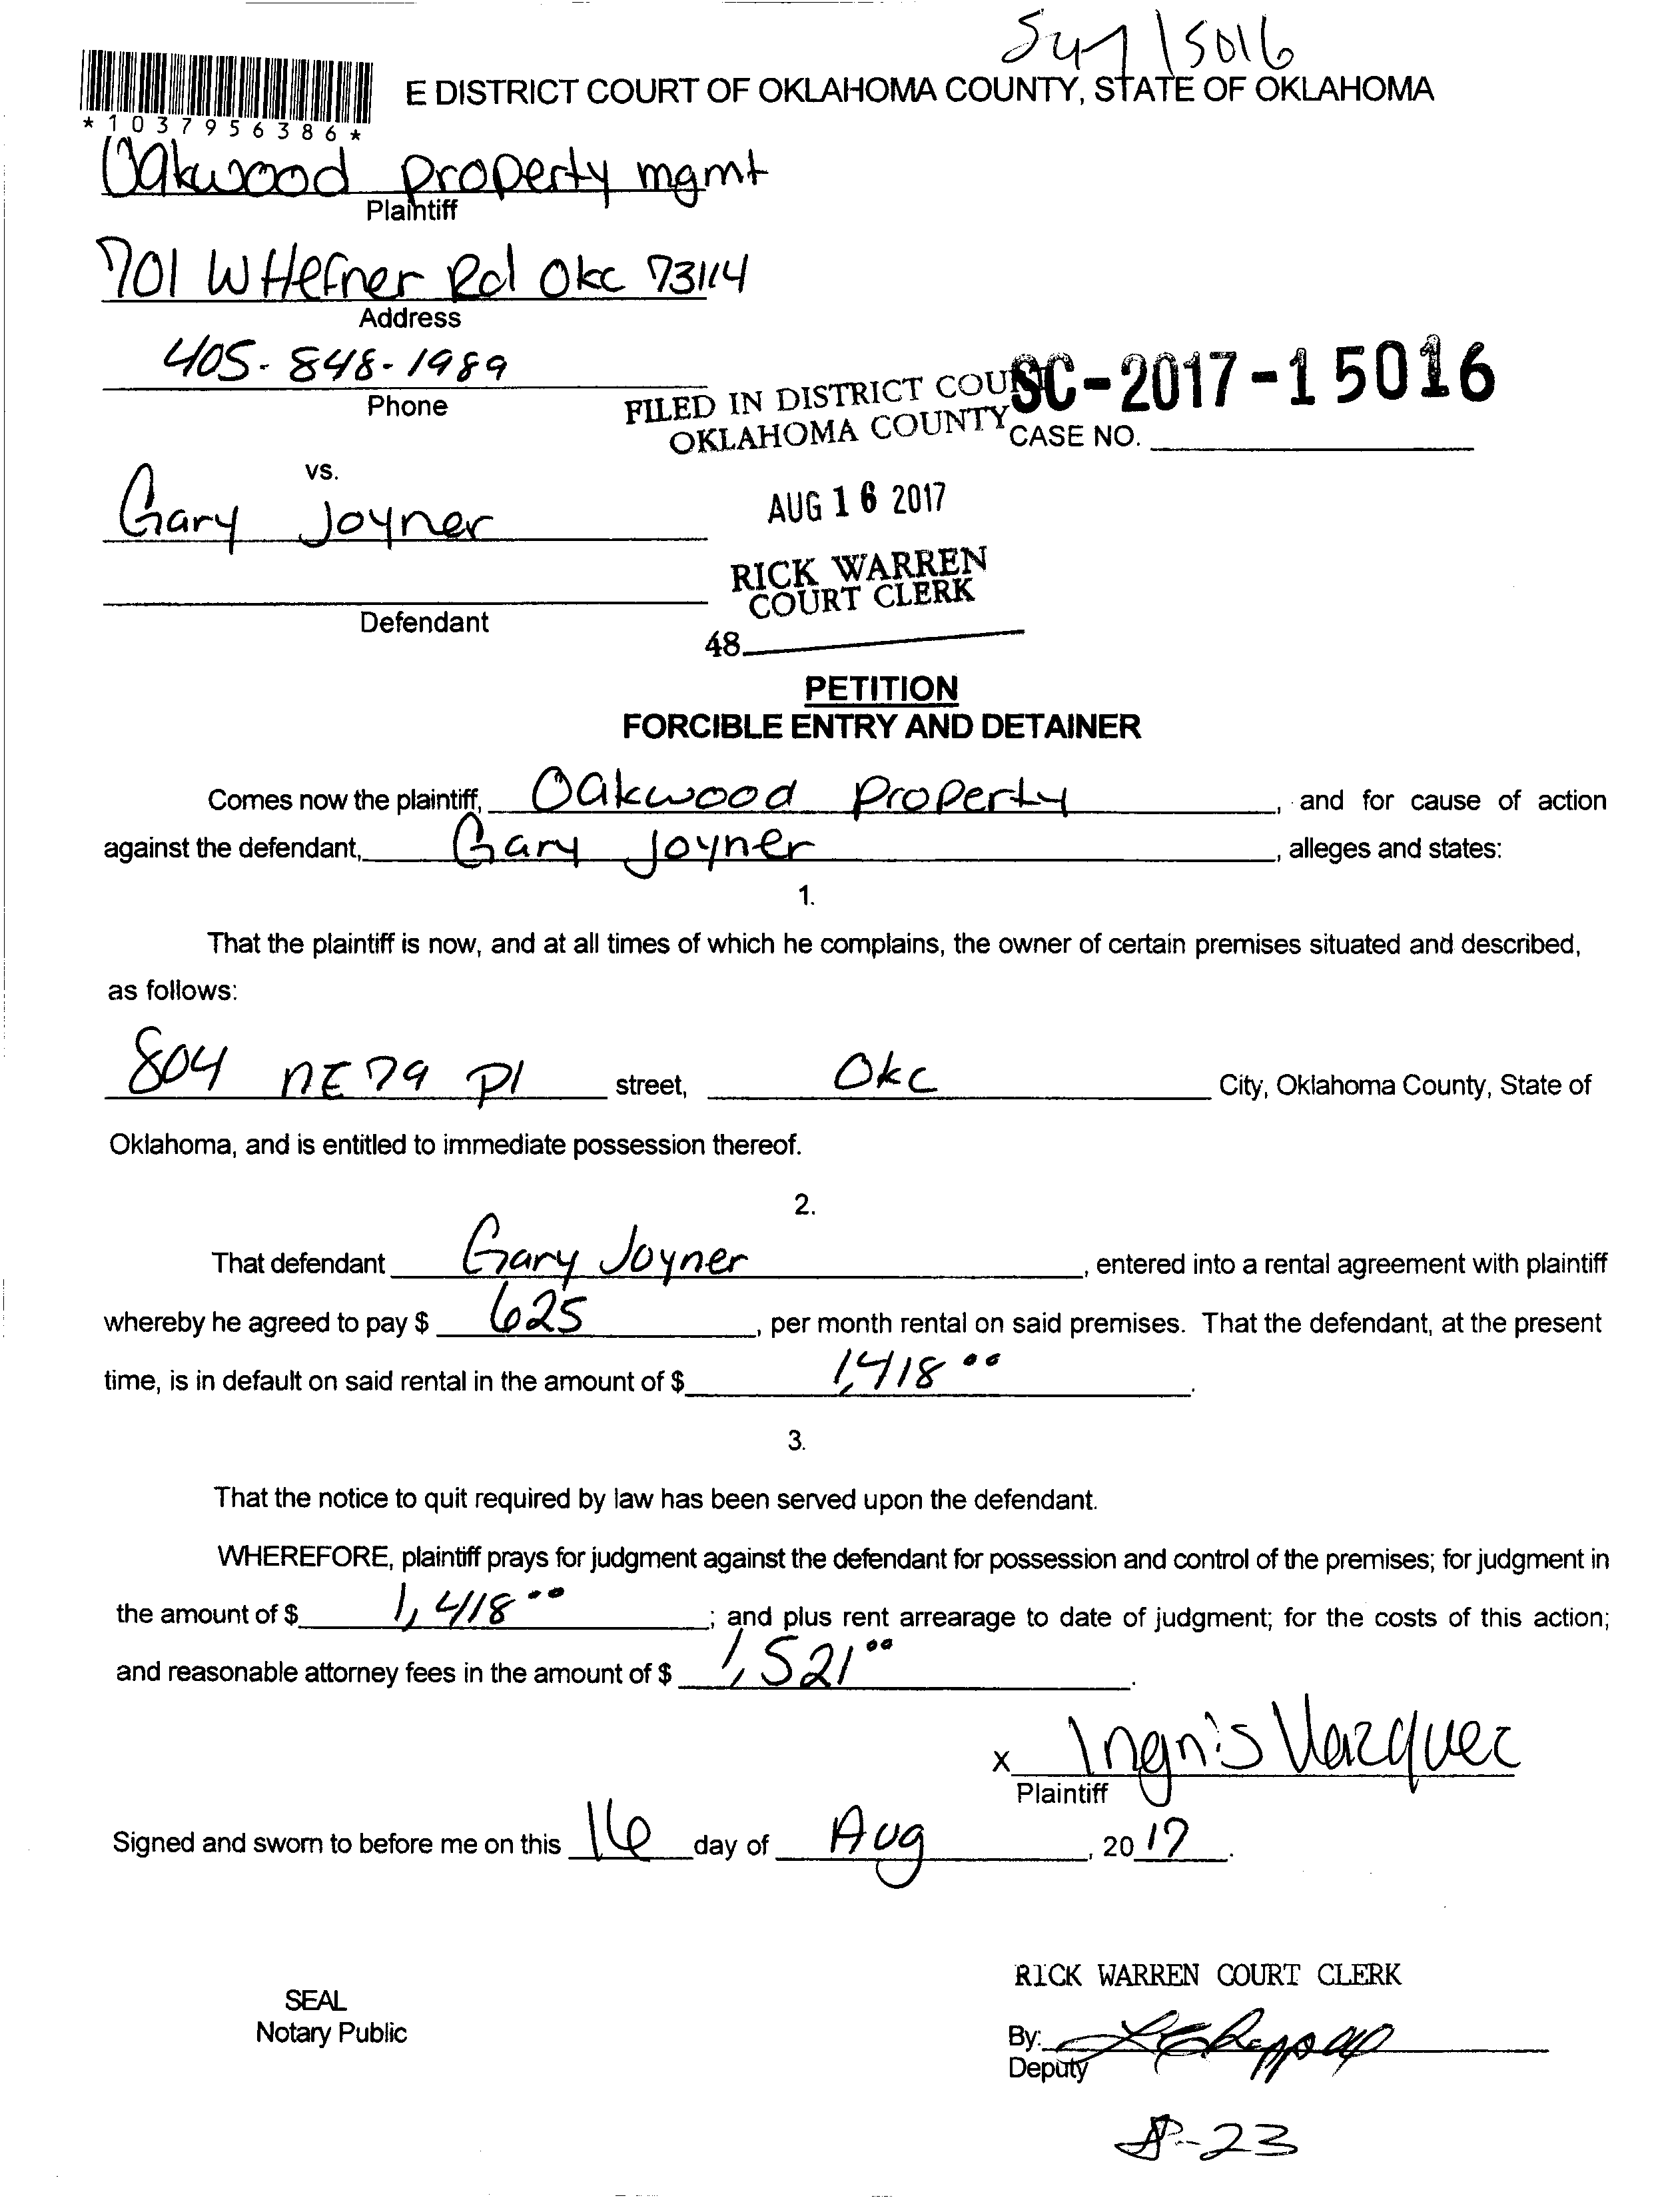 15016
E DISTRICT COURT OF OKLAHOMA COUNTY, STATE OF OKLAHOMA
*1037956386*
Oakwood property mgmt
Plaintiff
701 W Hefner Rd Okc 73114
Address
405-848-1989
Phone
FILED IN DISTRICT COU
OKLAHOMA COUNTY
SC-2017-15016
CASE NO.
vs.
Gary Joyner
AUG 16 2017
RICK WARREN
COURT CLERK
Defendant
48
PETITION
FORCIBLE ENTRY AND DETAINER
Comes now the plaintiff, Oakwood Property, and for cause of action
against the defendant, Gary Joyner, alleges and states:
1.
That the plaintiff is now, and at all times of which he complains, the owner of certain premises situated and described,
as follows:
804 NE 79 Pl street, Okc City, Oklahoma County, State of
Oklahoma, and is entitled to immediate possession thereof.
2.
That defendant Gary Joyner, entered into a rental agreement with plaintiff
whereby he agreed to pay $ 625, per month rental on said premises. That the defendant, at the present
time, is in default on said rental in the amount of $ 1,418 00.
3.
That the notice to quit required by law has been served upon the defendant.
WHEREFORE, plaintiff prays for judgment against the defendant for possession and control of the premises; for judgment in
the amount of $ 1,418 00; and plus rent arrearage to date of judgment; for the costs of this action;
and reasonable attorney fees in the amount of $ 1,521 00.
x Vazquez
Plaintiff
Signed and sworn to before me on this 16 day of Aug, 20 17.
RICK WARREN COURT CLERK
SEAL
Notary Public
By:
Deputy
8-23